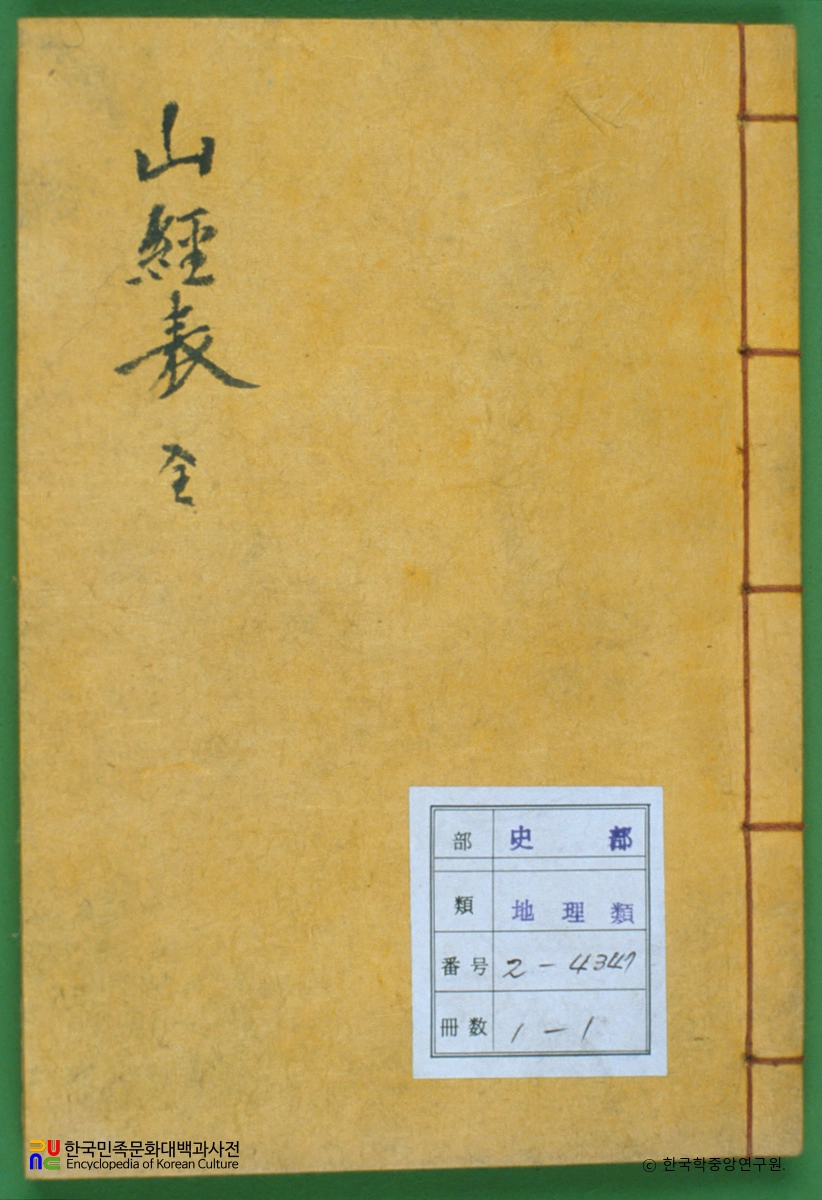 山經表 全
部 史部
類 地理類
番号 2-4347
冊数 1-1
한국민족문화대백과사전
Encyclopedia of Korean Culture
© 한국학중앙연구원.